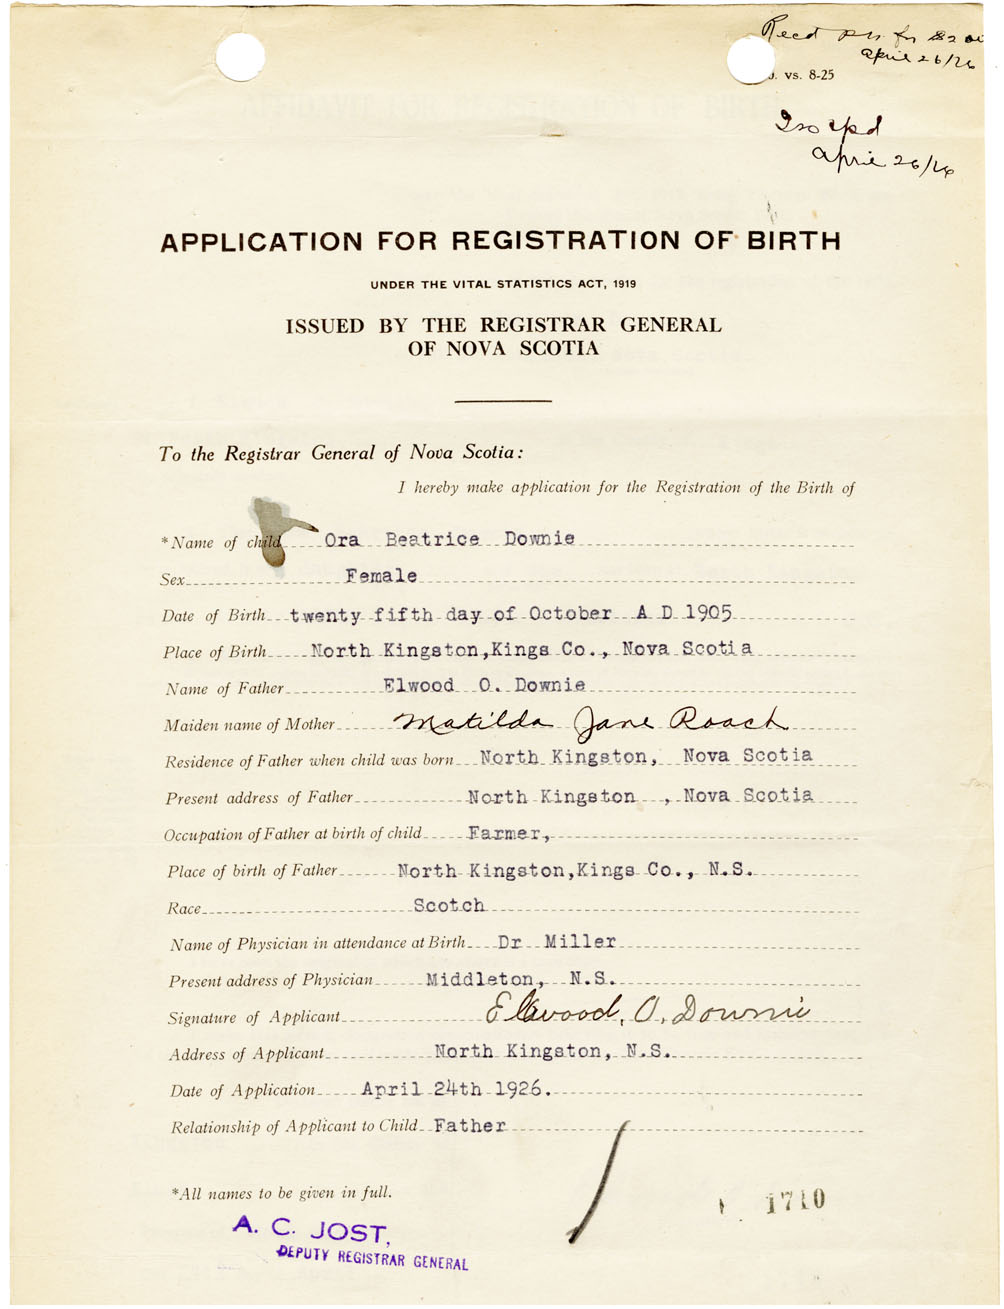 Recd for $2.00
April 26/26
. vs. 8-25
April 26/26
APPLICATION FOR REGISTRATION OF BIRTH
UNDER THE VITAL STATISTICS ACT, 1919
ISSUED BY THE REGISTRAR GENERAL
OF NOVA SCOTIA
To the Registrar General of Nova Scotia:
I hereby make application for the Registration of the Birth of
*Name of child Ora Beatrice Downie
Sex Female
Date of Birth twenty fifth day of October A D 1905
Place of Birth North Kingston,Kings Co., Nova Scotia
Name of Father Elwood O. Downie
Maiden name of Mother Matilda Jane Roach
Residence of Father when child was born North Kingston, Nova Scotia
Present address of Father North Kingston , Nova Scotia
Occupation of Father at birth of child Farmer,
Place of birth of Father North Kingston,Kings Co., N.S.
Race Scotch
Name of Physician in attendance at Birth Dr Miller
Present address of Physician Middleton, N.S.
Signature of Applicant Elwood, O, Downie
Address of Applicant North Kingston, N.S.
Date of Application April 24th 1926.
Relationship of Applicant to Child Father
*All names to be given in full.
1710
A. C. JOST,
DEPUTY REGISTRAR GENERAL